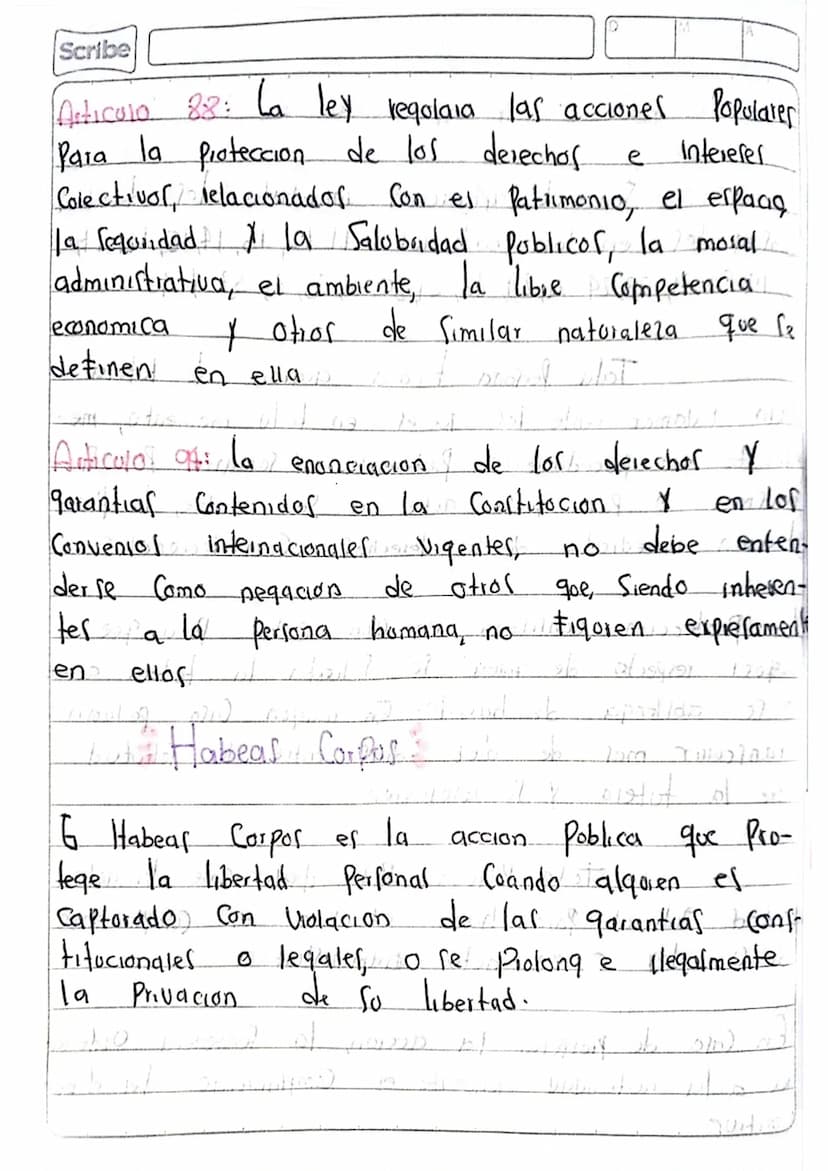 Scribe
D M A
Articulo 88: La ley regolara las acciones Populares
Para la Proteccion de los derechos e Intereses
Colectivos, relacionados Con el Patrimonio, el espacio,
la Seguridad y la Salobridad Poblicos, la moral
administrativa, el ambiente, la libre Competencia
economica y otros de Similar naturaleza que se
definen en ella
Articulo 94: la enonciacion de los derechos y
garantias Contenidos en la Constitocion y en los
Convenios internacionales Vigentes, no debe enten-
derse Como negacion de otros qoe, Siendo inheren-
tes a la Persona homana, no figoren expresament
en ellos
Habeas Corpos
6 Habeas Corpos es la accion Poblica que Pro-
tege la libertad Personal Coando algoien es
Captorado Con Violacion de las garantias Cons-
titocionales o legales, o se Prolong e ilegalmente
la Privacion de So libertad.